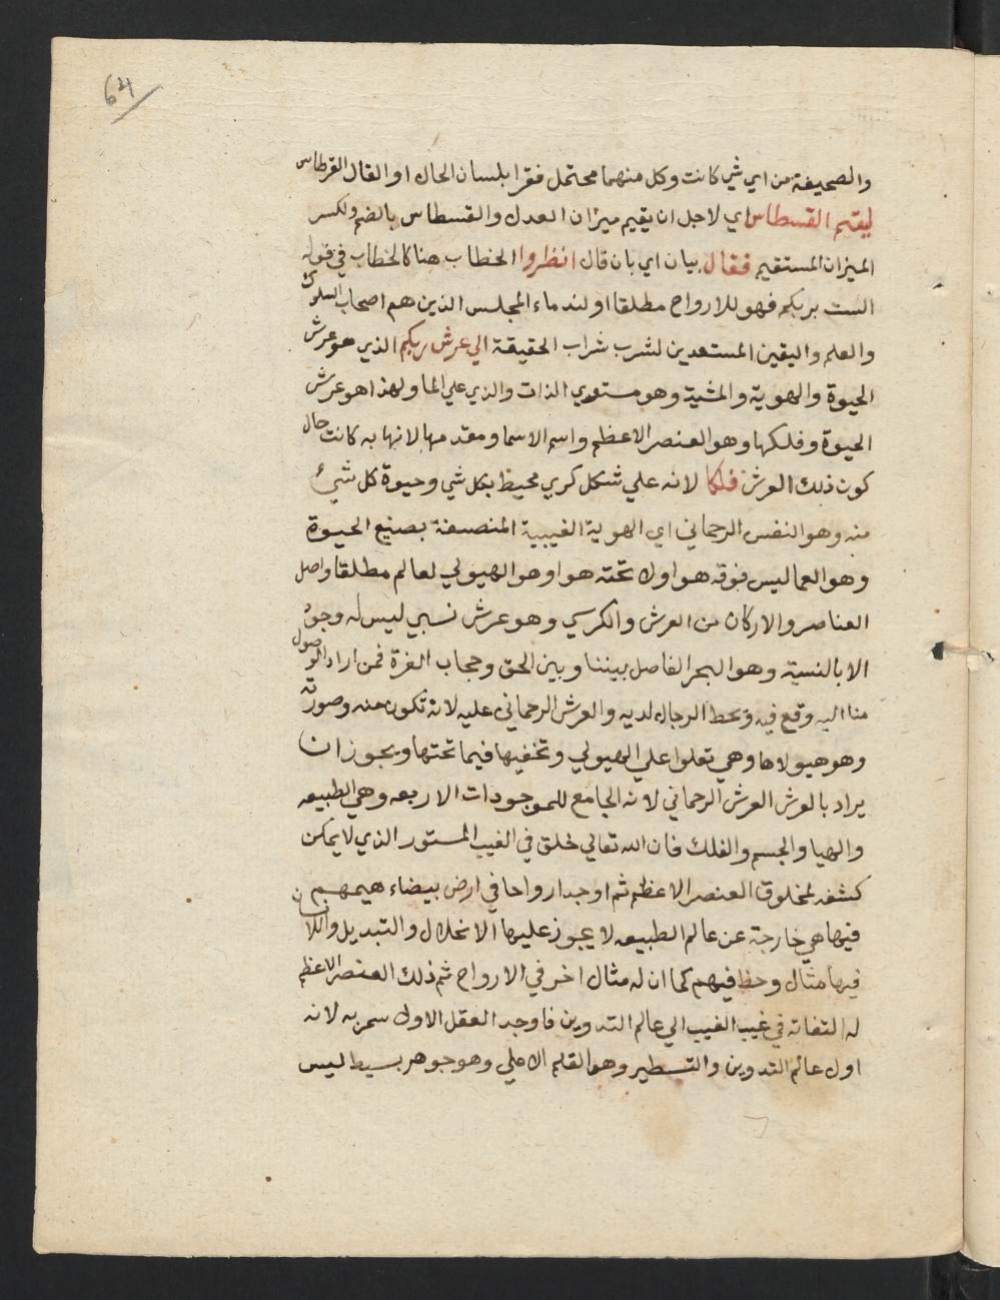 64
والصحيفة من اي شي كانت وكل منهما محتمل فقرا بلسان الحال او القال القرطاس
ليقيم القسطاس اي لاجل ان يقيم ميزان العدل والقسطاس بالضم والكسر
الميزان المستقيم فقال بيان اي بان قال انظروا الخطاب هنا كالخطاب في قوله
الست بربكم فهو للارواح مطلقا او لندماء المجلس الذين هم اصحاب السلوك
والعلم واليقين المستعدين لشرب شراب الحقيقة الي عرش ربكم الذي هو عرش
الحيوة والهوية والمشية وهو مستوي الذات والذي علي الما ولهذا هو عرش
الحيوة وفلكها وهو العنصر الاعظم واسم الاسما ومقدمها لانها به كانت حال
كون ذلك العرش فلكا لانه علي شكل كري محيط بكل شي وحيوة كل شيء
منه وهو النفس الرحماني اي الهوية الغيبية المنصبغة بصبغ الحيوة
وهو العما ليس فوقه هوا ولا تحته هوا وهو الهيولي لعالم مطلقا واصل
العناصر والاركان من العرش والكرسي وهو عرش نسبي ليس له وجود
الا بالنسبة وهو البحر الفاصل بيننا وبين الحق وحجاب العزة فمن اراد الوصول
منا اليه وقع فيه وتحط الرجال لديه والعرش الرحماني عليه لانه تكون منه وصورته
وهو هيولاها وهي تعلوا علي الهيولي وتخفيها فيما تحتها ويجوز ان
يراد بالعرش العرش الرحماني لانه الجامع للموجودات الاربعه وهي الطبيعه
والهبا والجسم والفلك فان الله تعالي خلق في الغيب المستور الذي لا يمكن
كشفه لمخلوق العنصر الاعظم ثم اوجد ارواحا في ارض بيضاء هيمهم
فيها هي خارجة عن عالم الطبيعه لا يجوز عليها الانحلال والتبديل وللانسان
فيها مثال وحظ فيهم كما ان له مثال اخر في الارواح ثم ذلك العنصر الاعظم
له التفاته في غيب الغيب الي عالم التدوين فاوجد العقل الاول سمي به لانه
اول عالم التدوين والتسطير وهو القلم الاعلي وهو جوهر بسيط ليس